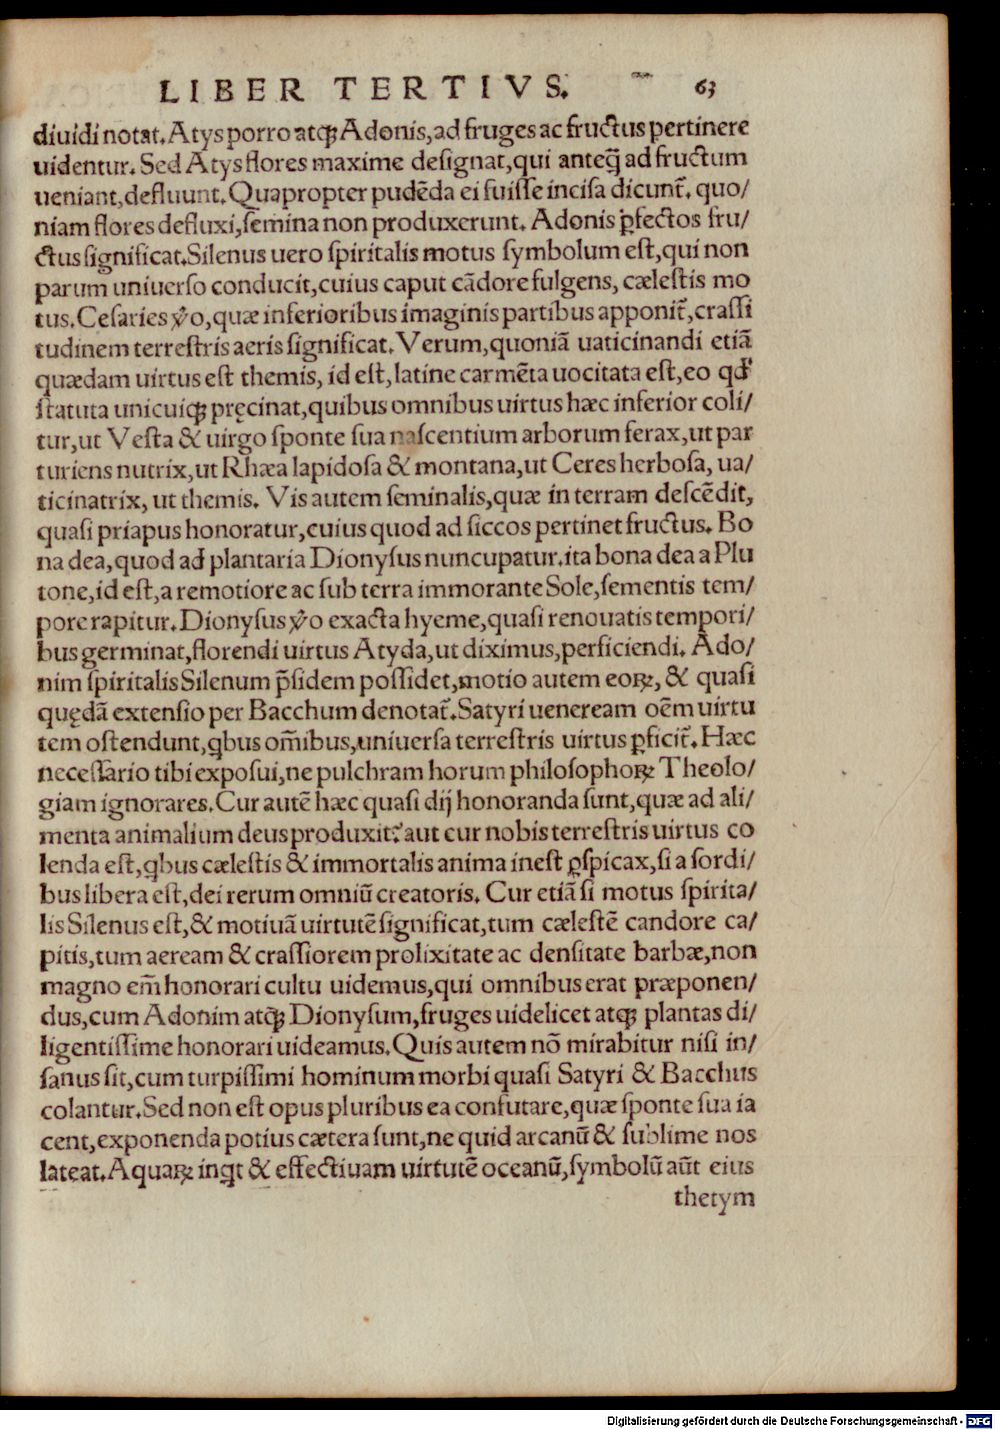 LIBER TERTIVS. 63
diuidi notat. Atys porro atq; Adonis, ad fruges ac fructus pertinere
uidentur. Sed Atys flores maxime designat, qui anteq̃ ad fructum
ueniant, defluunt. Quapropter pudẽda ei fuisse incisa dicunt᷑. quo/
niam flores defluxi, semina non produxerunt. Adonis ꝑfectos fru/
ctus significat. Silenus uero spiritalis motus symbolum est, qui non
parum uniuerso conducit, cuius caput cãdore fulgens, cælestis mo
tus. Cesaries ꝟo, quæ inferioribus imaginis partibus apponit᷑, crassi
tudinem terrestris aeris significat. Verum, quoniã uaticinandi etiã
quædam uirtus est themis, id est, latine carmẽta uocitata est, eo qđ
statuta unicuiq; pręcinat, quibus omnibus uirtus hæc inferior coli/
tur, ut Vesta & uirgo sponte sua nascentium arborum ferax, ut par
turiens nutrix, ut Rhæa lapidosa & montana, ut Ceres herbosa, ua/
ticinatrix, ut themis. Vis autem seminalis, quæ in terram descẽdit,
quasi priapus honoratur, cuius quod ad siccos pertinet fructus. Bo
na dea, quod ad plantaria Dionysus nuncupatur. ita bona dea a Plu
tone, id est, a remotiore ac sub terra immorante Sole, sementis tem/
pore rapitur. Dionysus ꝟo exacta hyeme, quasi renouatis tempori/
bus germinat, florendi uirtus Atyda, ut diximus, perficiendi. Ado/
nim spiritalis Silenum p̃sidem possidet, motio autem eoꝝ, & quasi
quędã extensio per Bacchum denotat᷑. Satyri ueneream oẽm uirtu
tem ostendunt, qbus om̃ibus, uniuersa terrestris uirtus ꝑficit᷑. Hæc
necessario tibi exposui, ne pulchram horum philosophoꝝ Theolo/
giam ignorares. Cur autẽ hæc quasi dij honoranda sunt, quæ ad ali/
menta animalium deus produxit? aut cur nobis terrestris uirtus co
lenda est, qbus cælestis & immortalis anima inest ꝑspicax, si a sordi/
bus libera est, dei rerum omniũ creatoris. Cur etiã si motus spirita/
lis Silenus est, & motiuã uirtutẽ significat, tum cælestẽ candore ca/
pitis, tum aeream & crassiorem prolixitate ac densitate barbæ, non
magno em̃ honorari cultu uidemus, qui omnibus erat præponen/
dus, cum Adonim atq; Dionysum, fruges uidelicet atq; plantas di/
ligentissime honorari uideamus. Quis autem nõ mirabitur nisi in/
sanus sit, cum turpissimi hominum morbi quasi Satyri & Bacchus
colantur. Sed non est opus pluribus ea confutare, quæ sponte sua ia
cent, exponenda potius cætera sunt, ne quid arcanũ & sublime nos
lateat. Aquaꝝ inqt & effectiuam uirtutẽ oceanũ, symbolũ aũt eius
thetym
Digitalisierung gefördert durch die Deutsche Forschungsgemeinschaft - DFG